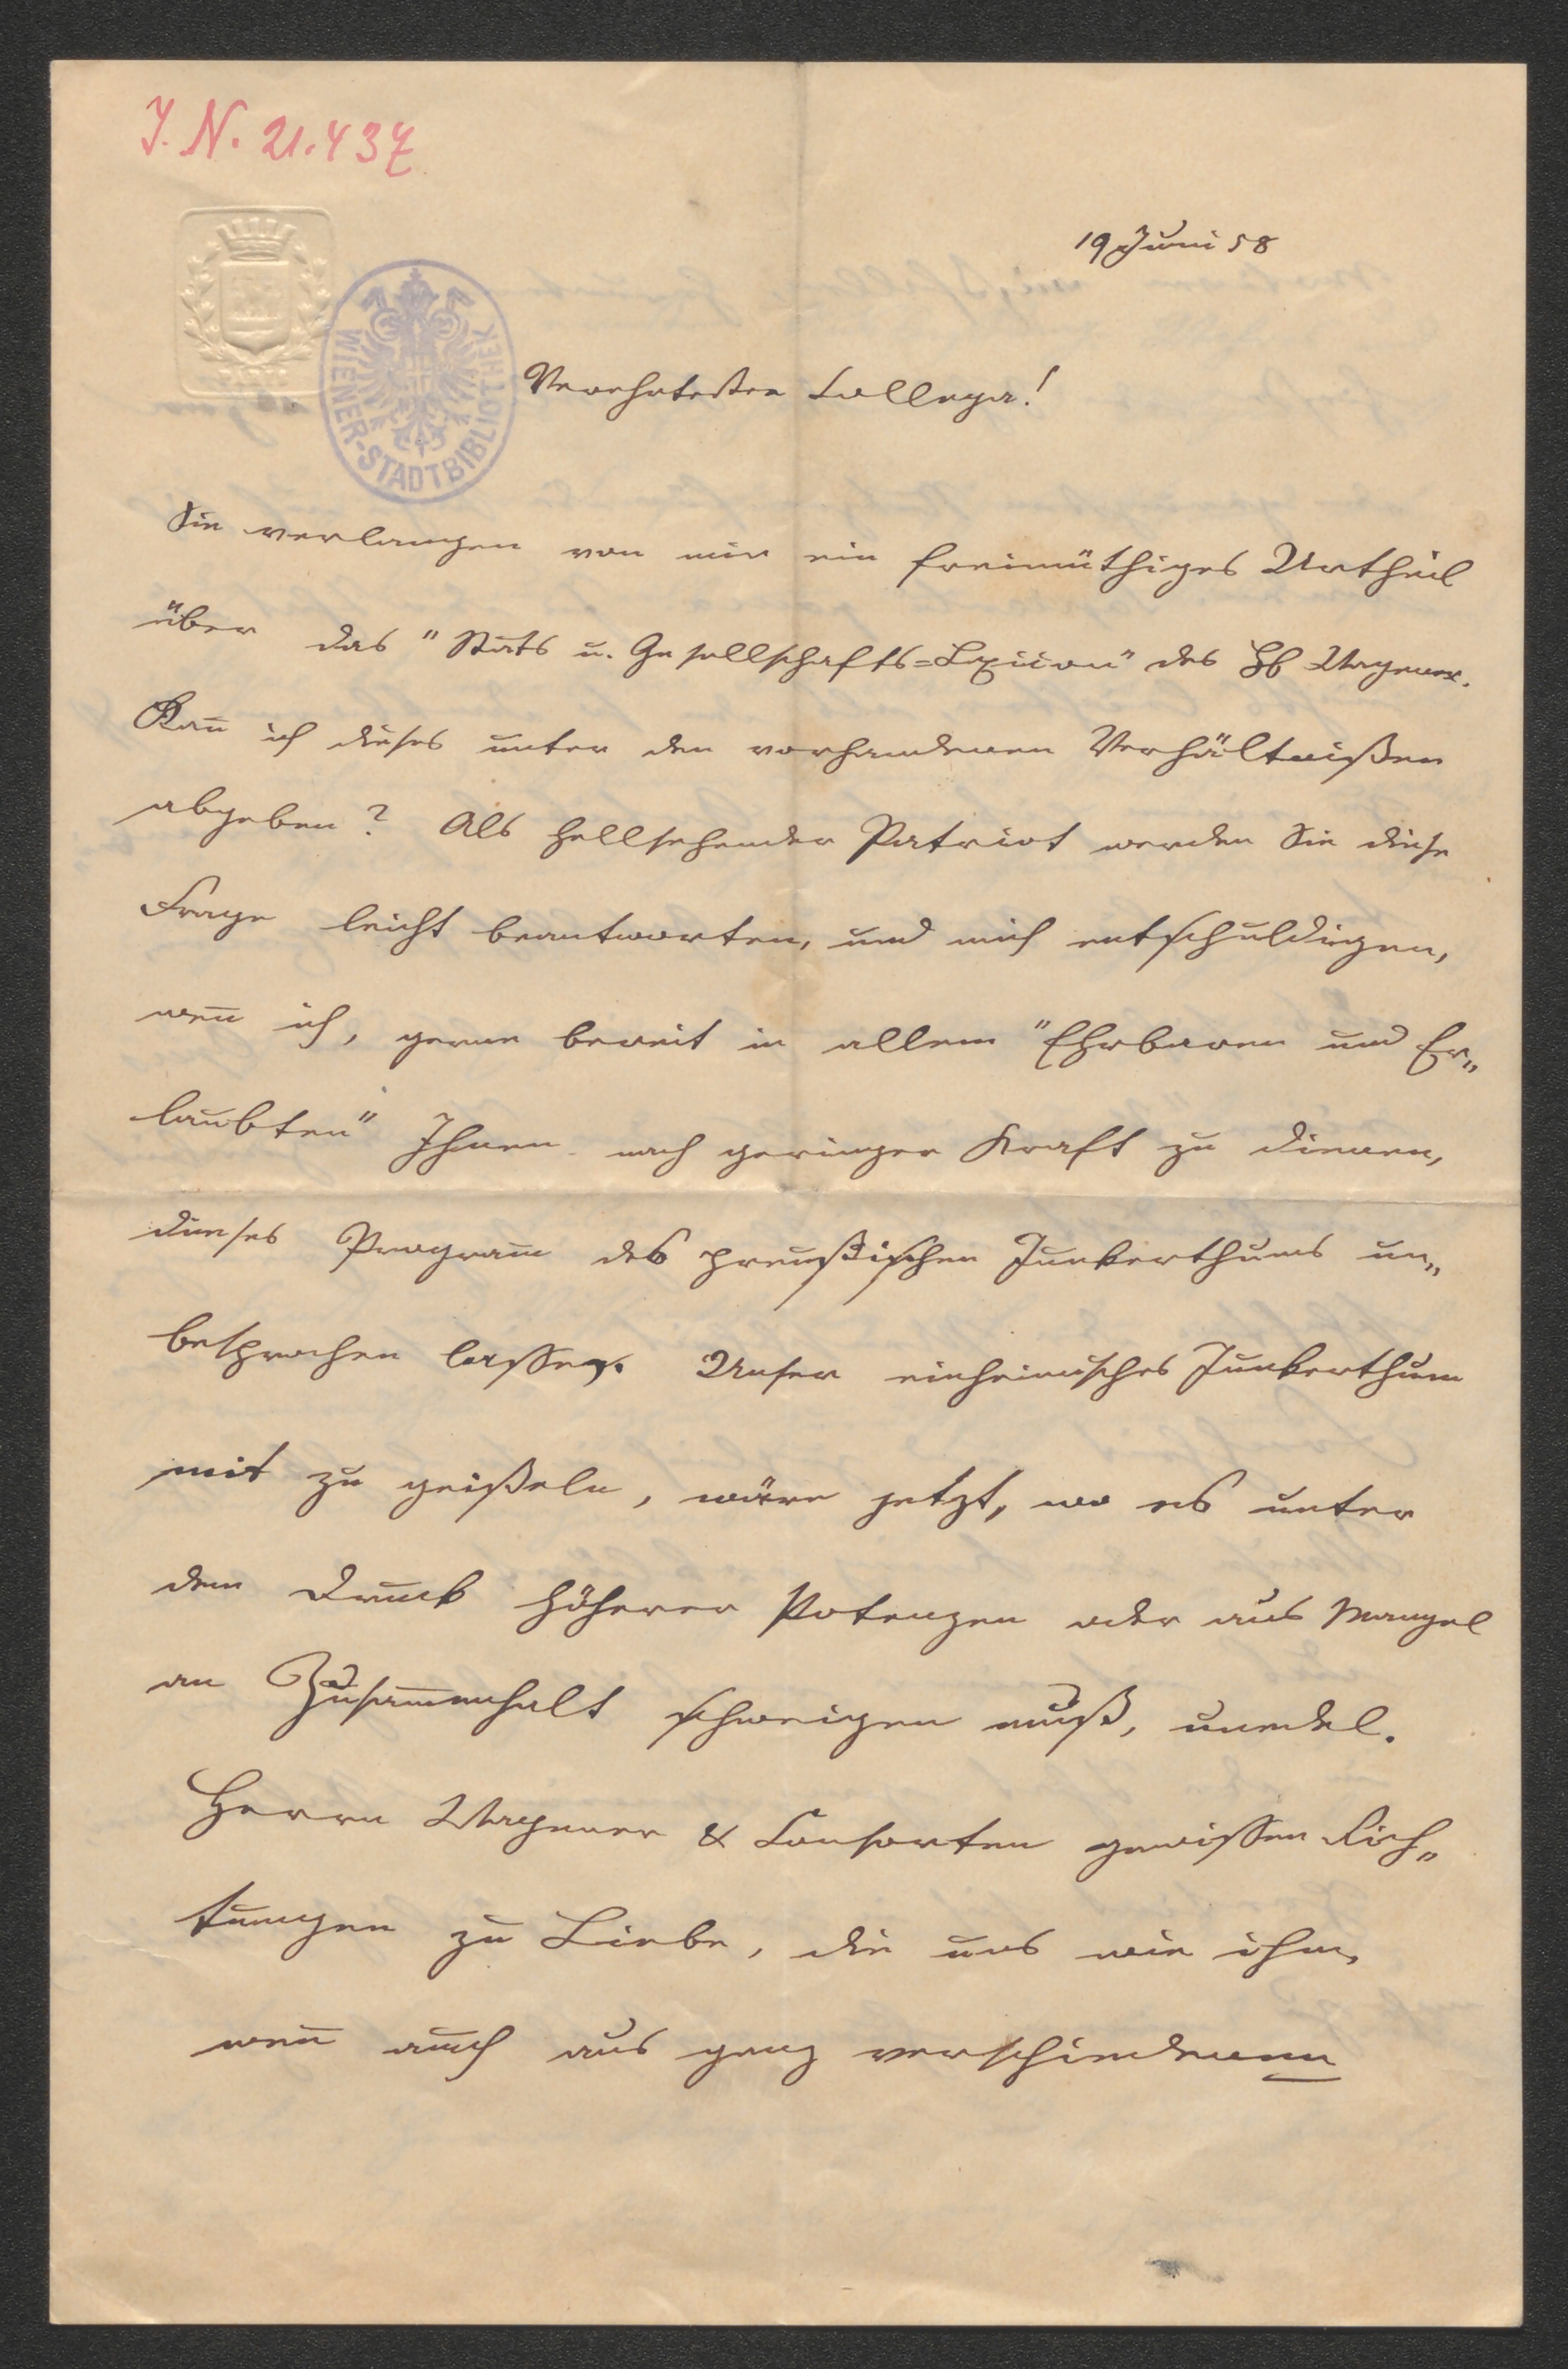 J. N. 21.437
19 Juni 58
WIENER-STADTBIBLIOTHEK
Verehrtester College!
Sie verlangen von mir ein freimüthiges Urtheil
über das "Stats u. Gesellschafts=Lexicon" des Wagener.
Kan̅ ich dieses unter den vorhandenen Verhältnißen
abgeben? Als hellsehender Patriot werden Sie diese
Frage leicht beantworten, und mich entschuldigen,
wen̅ ich, gerne bereit in allem "Ehrbaren und Er„
laubten" Ihnen nach geringer Kraft zu dienen,
dieses Program̅ des preußischen Junkerthums un„
besprochen lassen. Unser einheimisches Junkerthum
mit zu geißeln, wäre jetzt, wo es unter
dem Druck höherer Potenzen oder aus Mangel
an Zusam̅enhalt schweigen muß, unedel.
Herrn Wagener & Consorten gewissen Rich„
tungen zu Liebe, die uns wie ihm,
wen̅ auch aus ganz verschiedenen